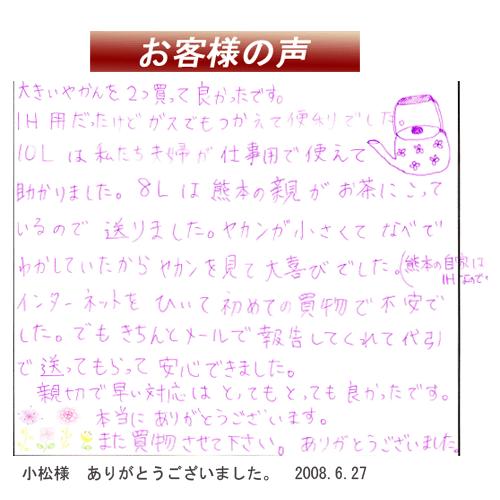 お客様の声
大きいやかんを2つ買って良かったです。
IH用だったけどガスでもつかえて便利でした。
10Lは私たち夫婦が仕事用で使えて
助かりました。8Lは熊本の親がお茶にこって
いるので送りました。ヤカンが小さくてなべで
わかしていたからヤカンを見て大喜びでした。(熊本の自家は
IHなので。
インターネットをひいて初めての買物で不安で
した。でもきちんとメールで報告してくれて代引
で送ってもらって安心できました。
親切で早い対応はとってもとっても良かったです。
本当にありがとうございます。
また買物させて下さい。ありがとうございました。
小松様 ありがとうございました。 2008.6.27